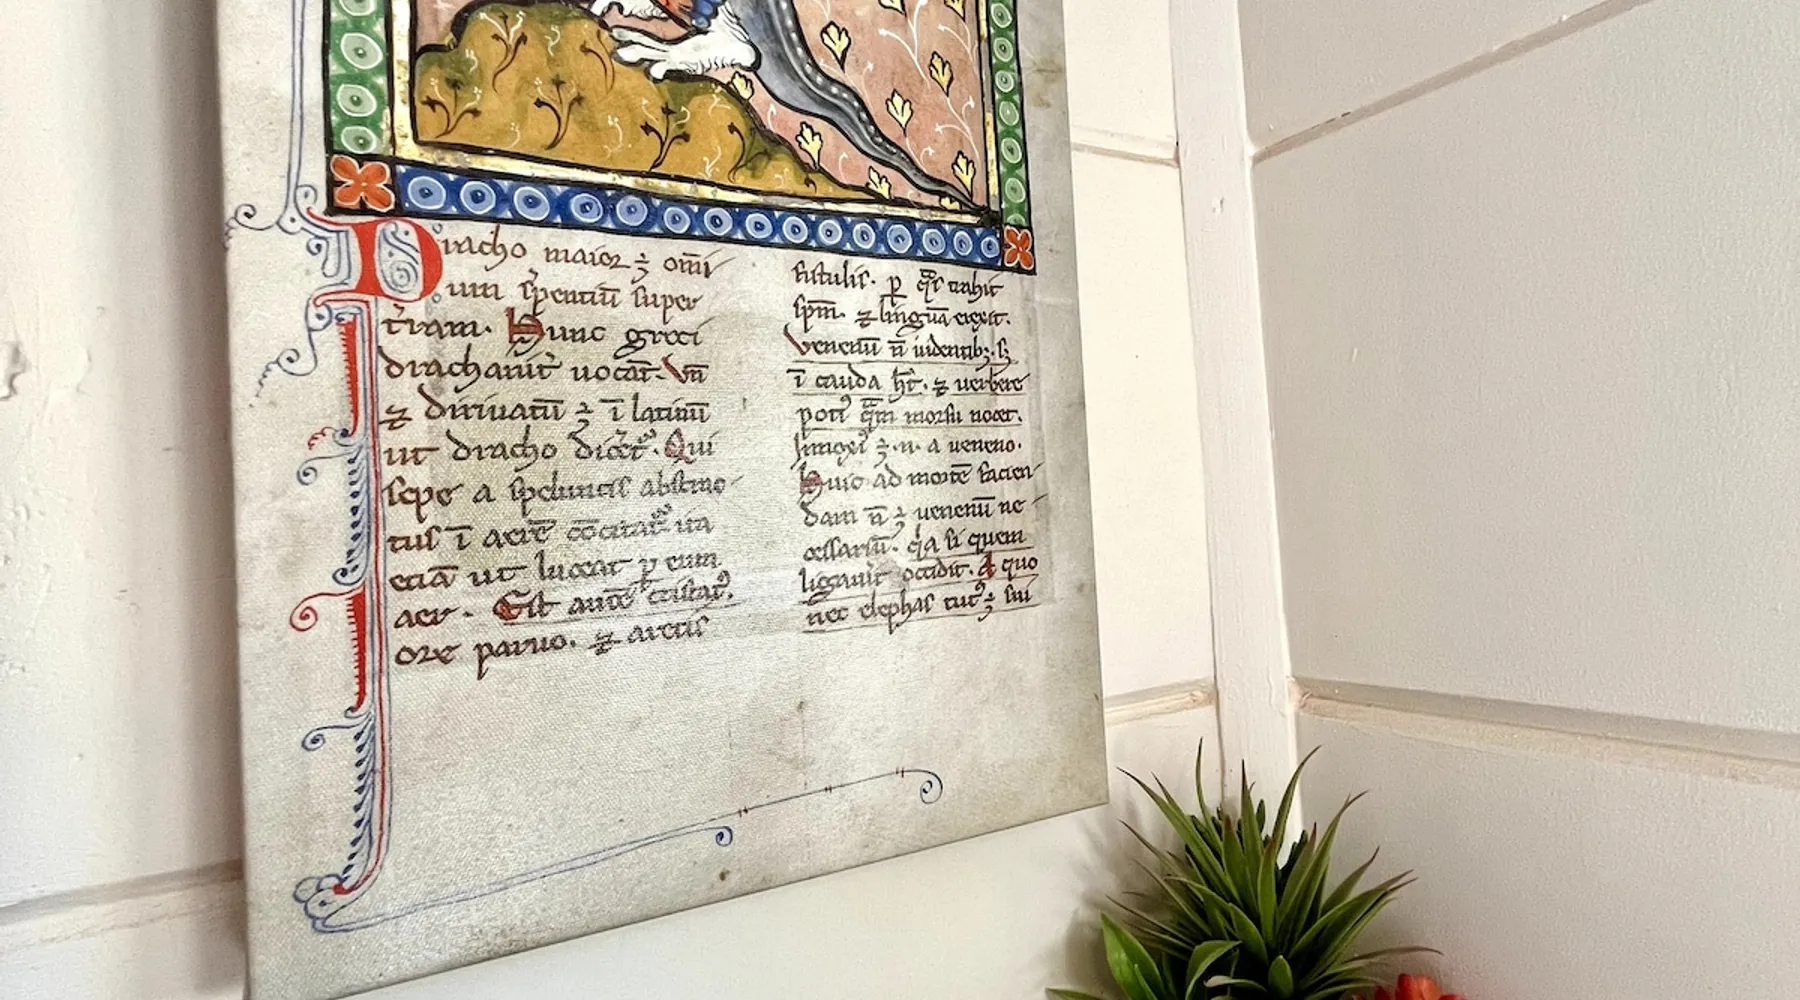 Dracho maior ÷ om̄i
um s̓pentiū super
t̓ram. Hunc greci
drachanu̓t uocāt. Vn̄
⁊ diriuatū ÷ ī latinū
ut dracho dic̓et᷑. Qui
sepe a speluncis abstrac
tus ī aerē c̄citat᷑ ita
eciā ut luceat p eum
aer. Est autē cristatꝰ.
ore paruo. ⁊ artis
fistulis. p qᷓs trahit
spm̄. ⁊ linguā exerit.
Venenū n̄ in dentibꝫ. sꝫ
ī cauda hꝫt. ⁊ uerbere
potiꝰ qᷓm morsu nocet.
Innoxiꝰ ÷ .n. a ueneno.
Huic ad mortē facien
dam n̄ ÷ uenenū ne
cessariū. q̓a si quem
ligau̓it occidit. A quo
nec elephas tutꝰ ÷ sui